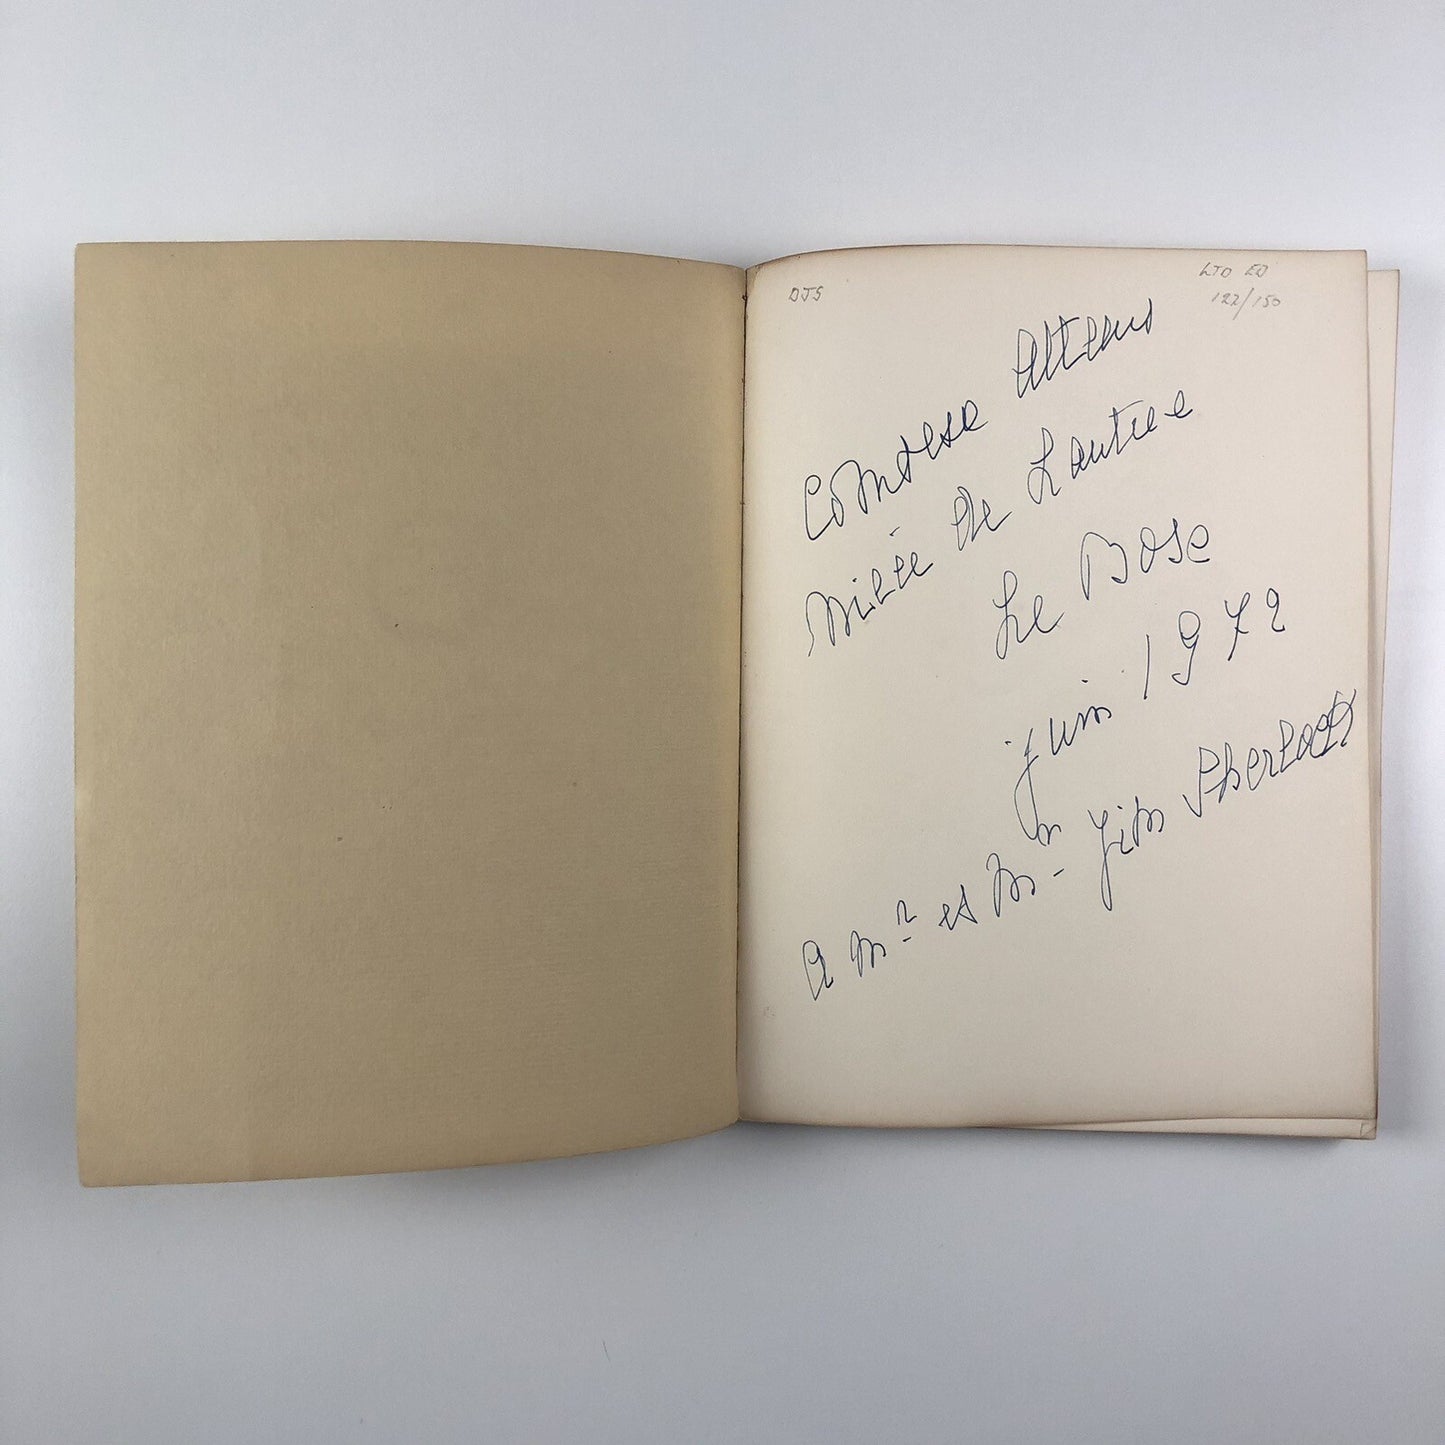 DJS
LTD ED
122/150
Comtesse Attems
née de Toulouse Lautrec
Le Bosc
juin 1972
a Mr et Mme Jim Sherlock